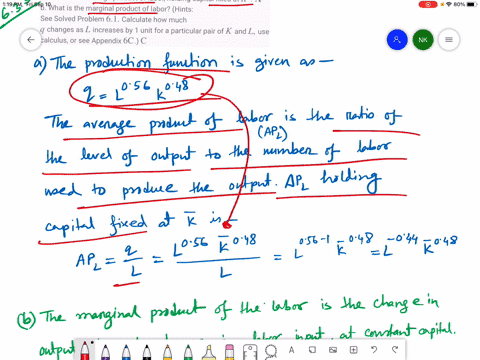 1:19 AM Fri Sep 10
60%
6.3
b. What is the marginal product of labor? (Hints:
See Solved Problem 6.1. Calculate how much
q changes as L increases by 1 unit for a particular pair of K and L, use
calculus, or see Appendix 6C.) C
NK
a) The production function is given as —
q = L^0.56 K^0.48
The average product of labor is the ratio of
(AP_L)
the level of output to the number of labor
used to produce the output. AP_L holding
capital fixed at K̅ is —
AP_L = q/L = L^0.56 K̅^0.48 / L = L^0.56-1 K̅^0.48 = L^-0.44 K̅^0.48
(b) The marginal product of the labor is the change in
output labor input, at constant capital.